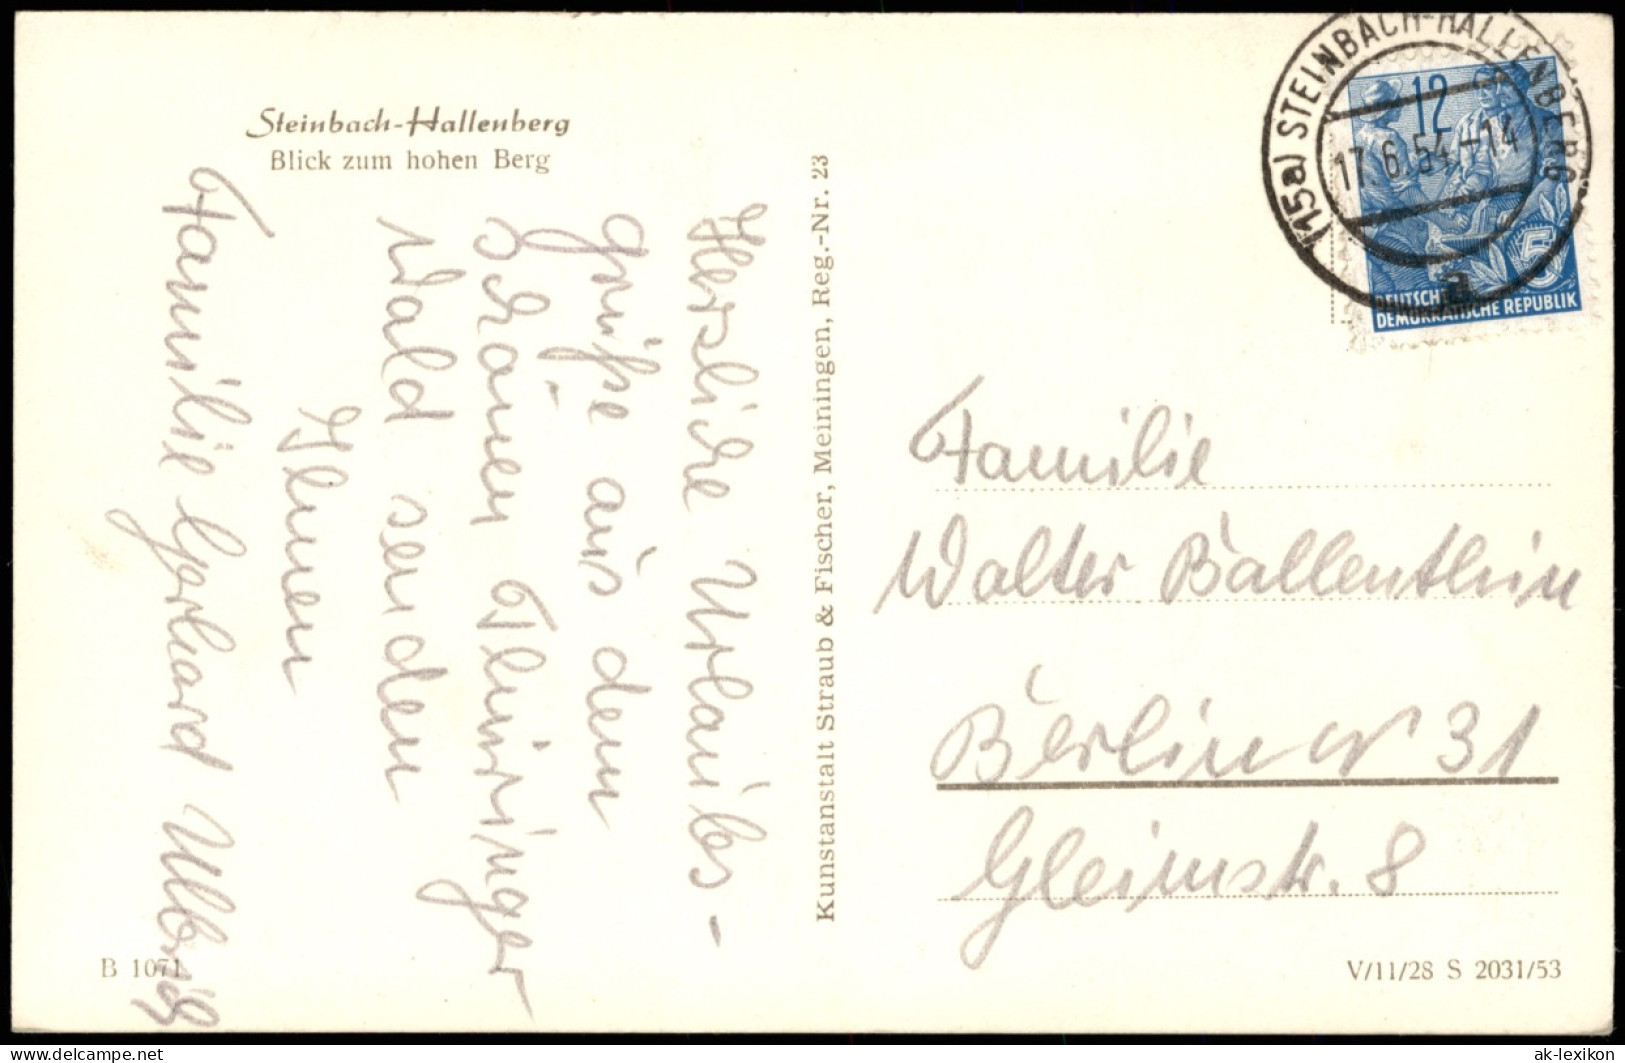 Steinbach-Hallenberg
Blick zum hohen Berg
Herzliche Urlaubs-
grüße aus dem
schönen Thüringer
Wald senden
Ihnen
Familie Gerhard Ulbrich
B 1071
Kunstanstalt Straub & Fischer, Meiningen, Reg.-Nr. 23
(15a) STEINBACH-HALLENBERG
17.6.54.-14
a
12
5
DEUTSCHE
DEMOKRATISCHE REPUBLIK
Familie
Walter Ballenthin
Berlin N 31
Gleimstr. 8
V/11/28 S 2031/53
ak-lexikon
www.delcampe.net